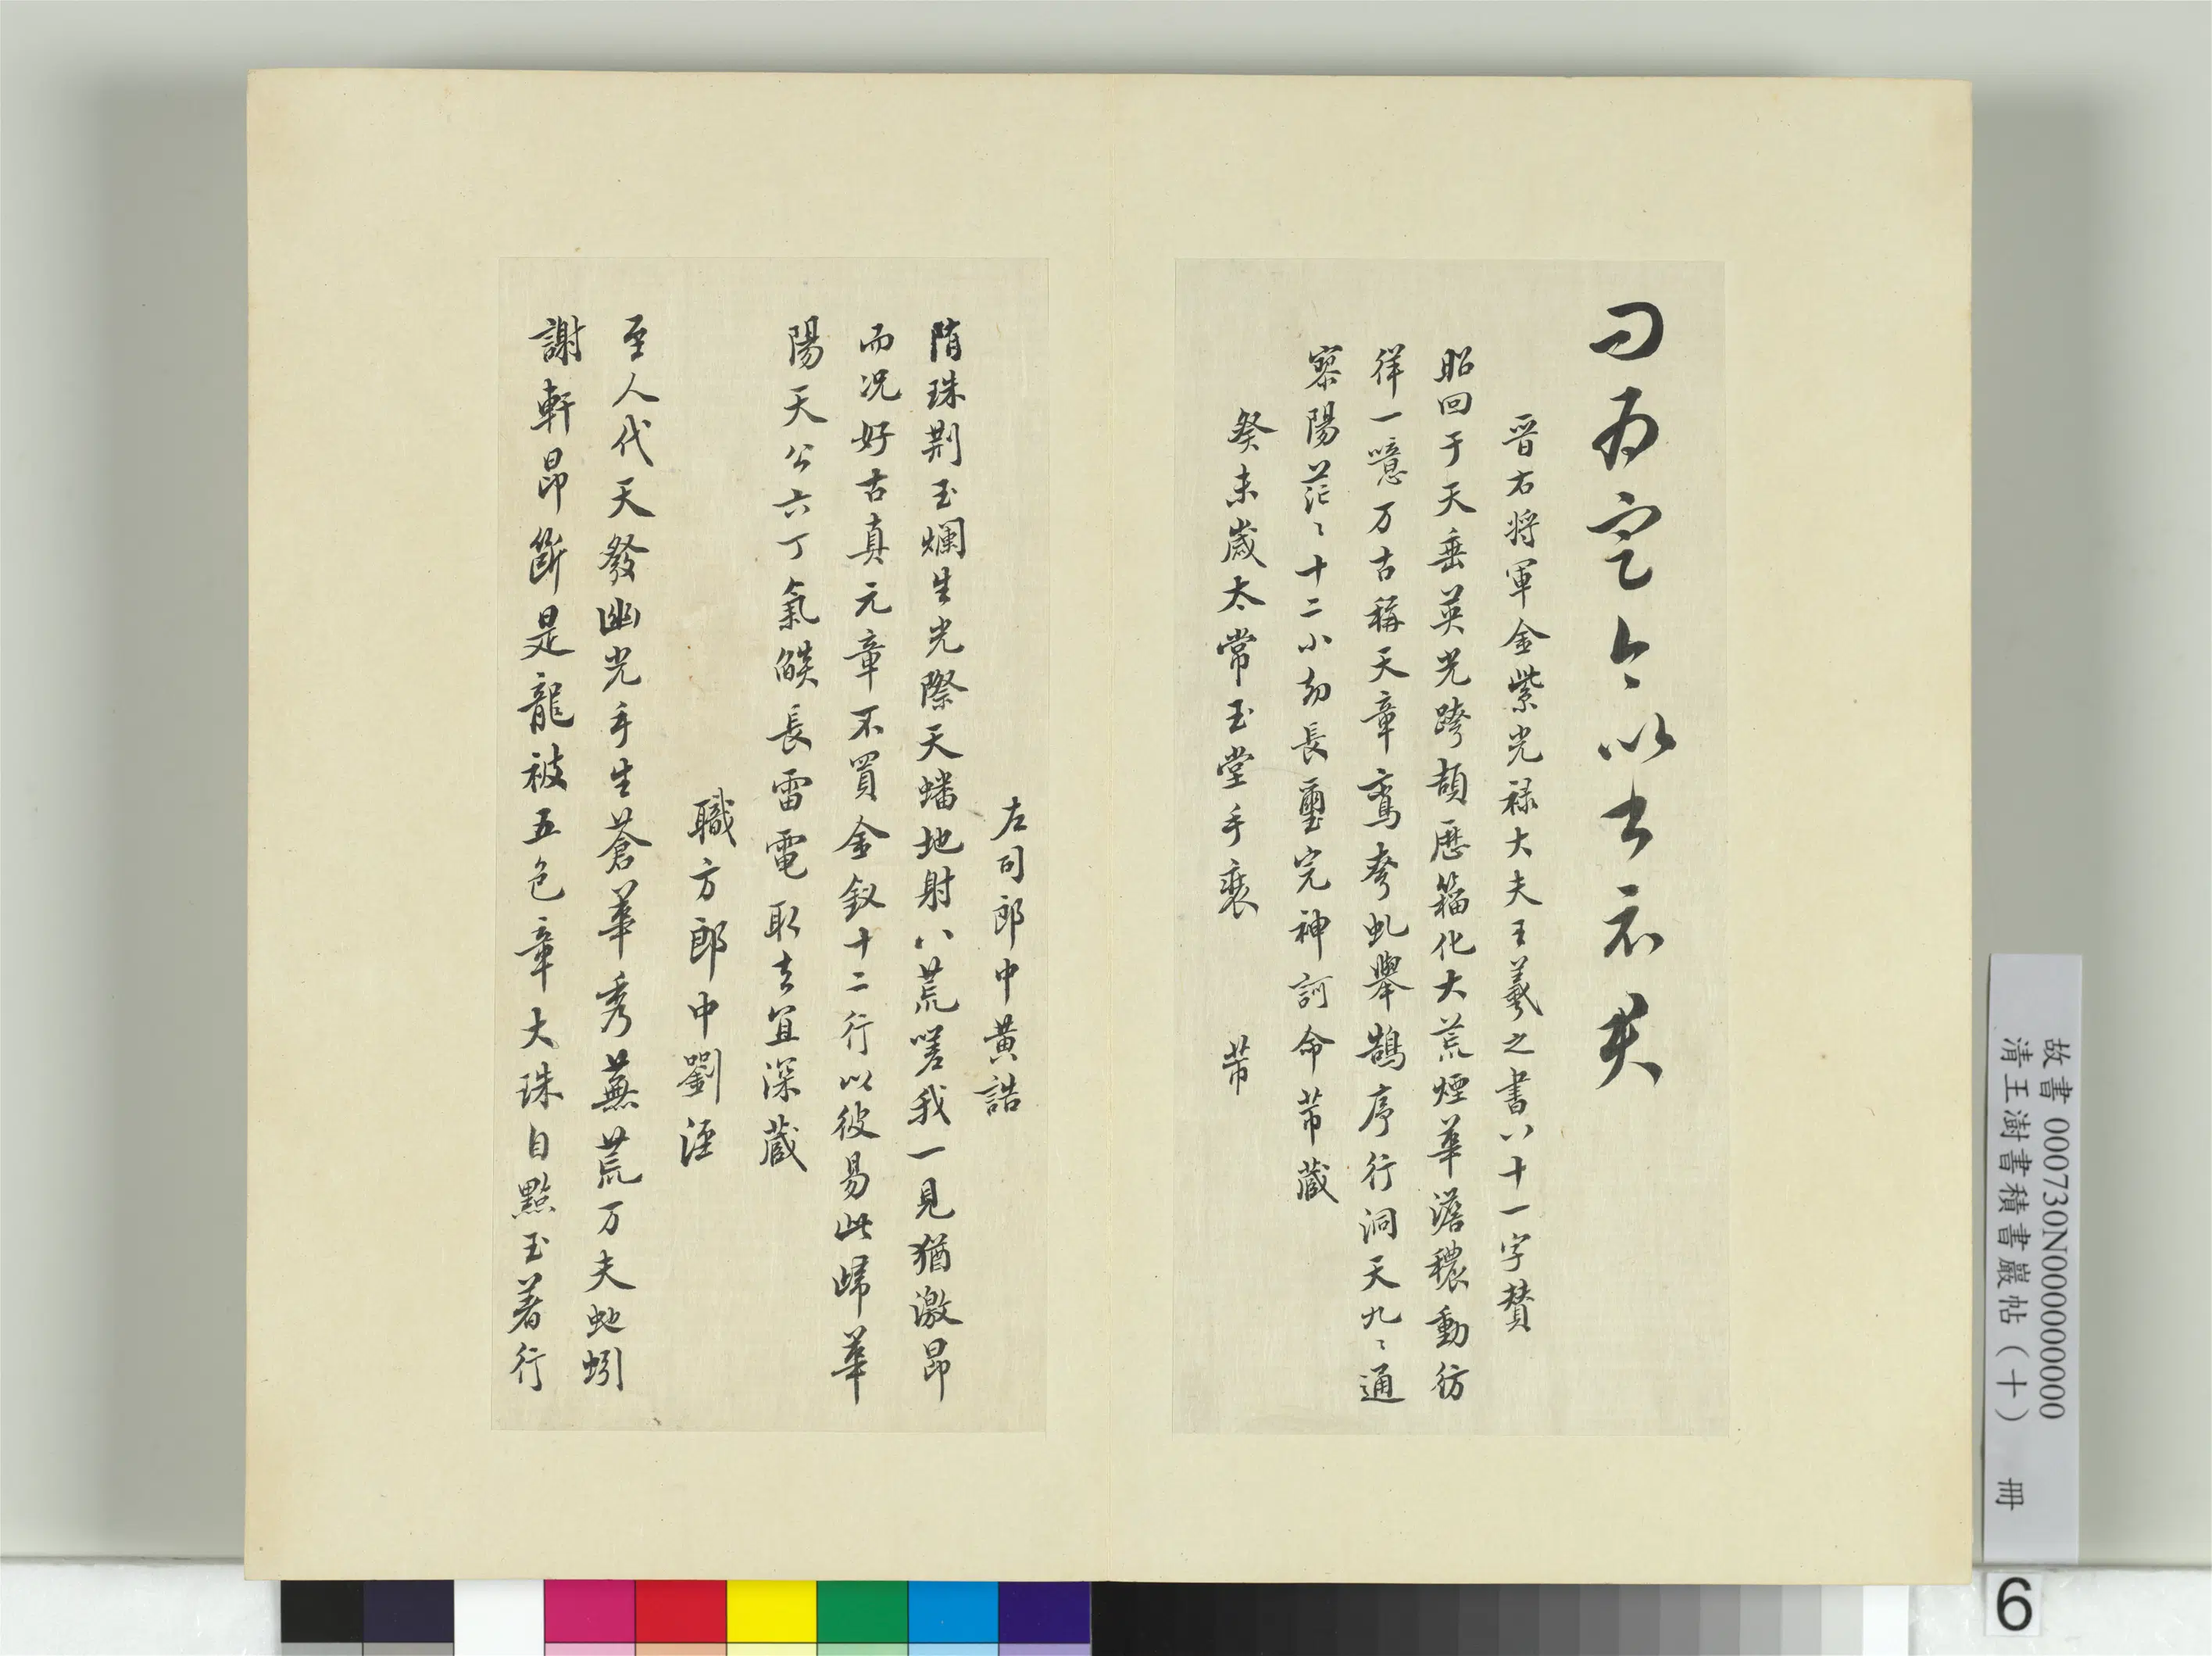 問為定今以書示君
晉右將軍金紫光禄大夫王羲之書八十一字贊
昭回于天垂英光跨頡歷籀化大荒煙華澹穠動彷
徉一噫万古稱天章鸞夸虬舉鵠序行洞天九〻通
寥陽茫〻十二小劫長璽完神訶命芾藏
癸未歲太常玉堂手裝 芾
左司郎中黄誥
隋珠荆玉爛生光際天蟠地射八荒嗟我一見猶激昂
而况好古真元章不買金釵十二行以彼易此歸華
陽天公六丁氣燄長雷電取去宜深藏
職方郎中劉涇
至人代天發幽光手生蒼華秀蕪荒万夫虵蚓
謝軒昂斷是龍被五色章大珠自點玉著行
故書 000730N000000000
清王澍書積書巖帖（十） 冊
6